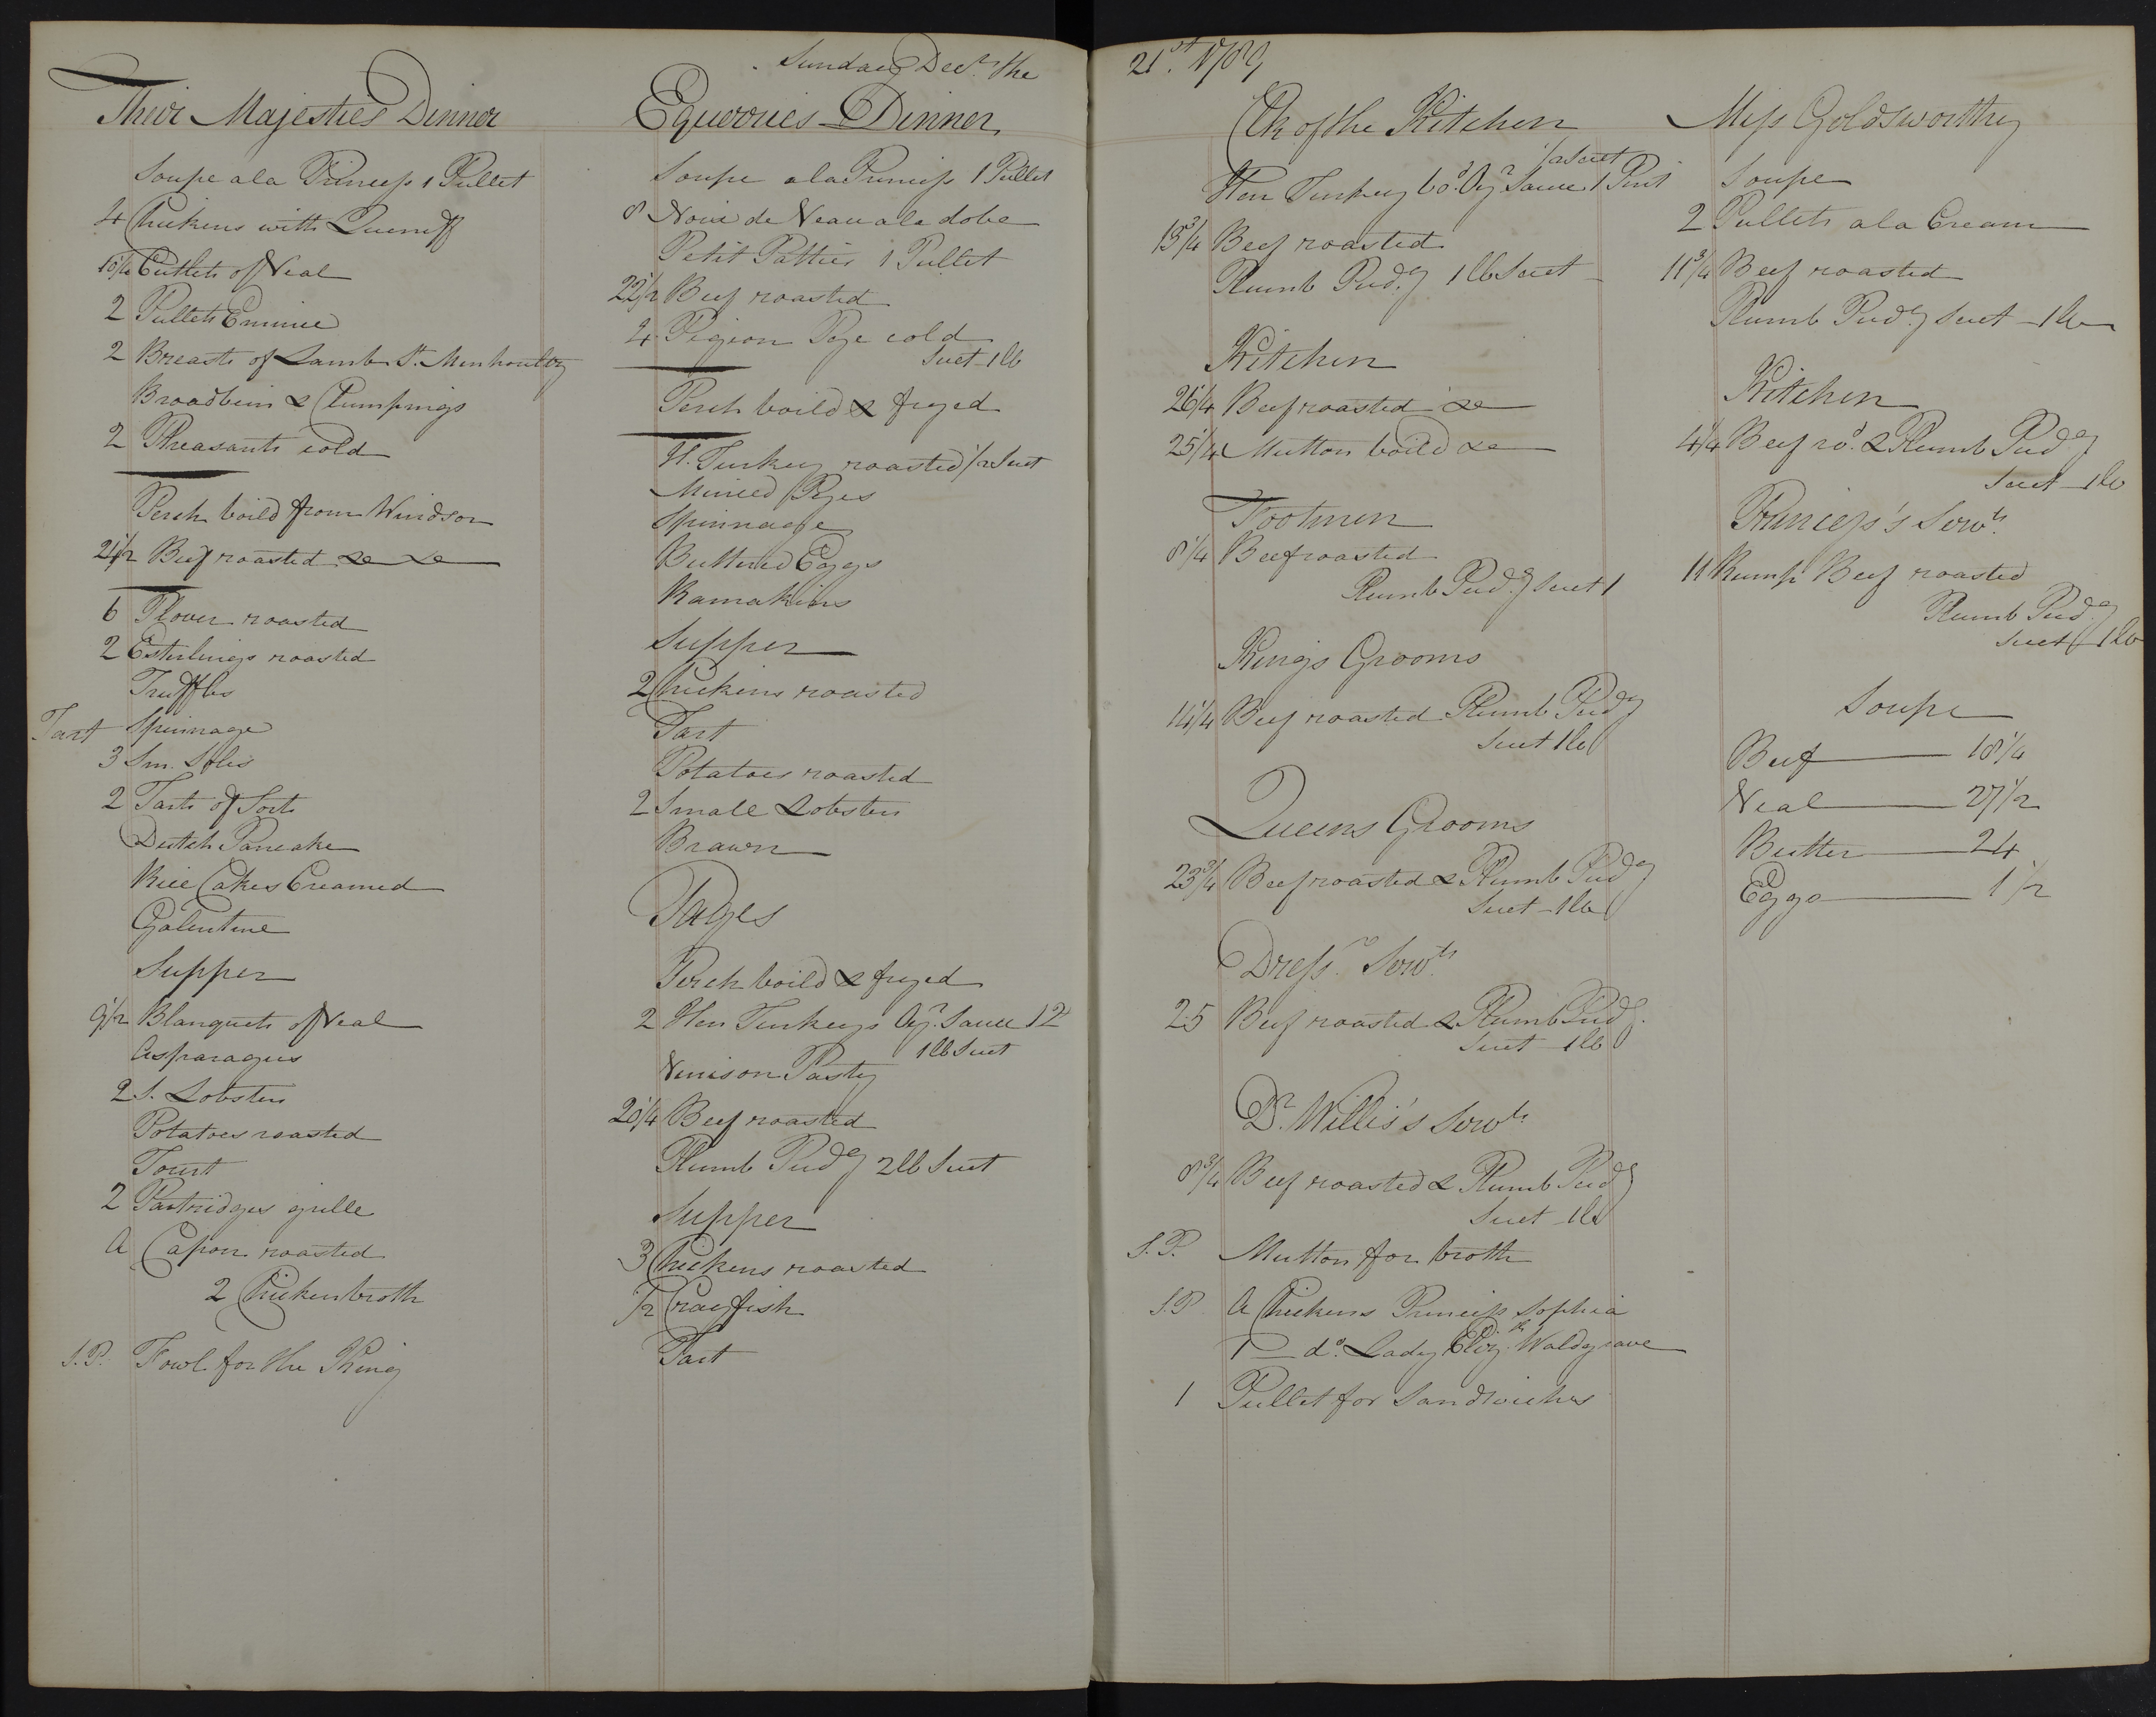 Sunday Decr. the
Their Majesties Dinner
Soupe ala Princess 1 Pullet
4 Chickens with
10 1/4 Cutlets of Veal
2 Pullets Emince
2 Breasts of Lamb St. Menhoultz
2 Pheasants cold
Perch boild from Windsor
21 1/2 Beef roasted &c &c
6 Plover roasted
2 Esterlings roasted
Truffles
Tart Spinnage
3 Sm.
2 Tarts of Sorts
Dutch Pancake
Rice Cakes Creamed
Galentine
Supper
9 1/2 Blanquets of Veal
Asparagus
2 S. Lobsters
Potatoes roasted
Tourt
2 Partridges grille
A Capon roasted
2 Chicken broth
S.P. Fowl for the King
Equerries Dinner
Soupe ala Princess 1 Pullet
8 Noix de Veau ala dobe
Petit Patties 1 Pullet
22 1/2 Beef roasted
4 Pigeon Pye cold
Suet 1 lb
Perch boild & fryed
H. Turkey roasted 1/2 Suet
Minced Pyes
Spinnage
Buttered Eggs
Ramakins
Supper
2 Chickens roasted
Tart
Potatoes roasted
2 Small Lobsters
Brawn
Pages
Perch boild & fryed
2 Hen Turkeys Oyr. Sauce 1 2
1 lb Suet
Venison Pasty
20 1/4 Beef roasted
Plumb Pudg 2 lb Suet
Supper
3 Chickens roasted
1/2 Crayfish
Tart
21st. 1789
Clk of the Kitchen
1/2 Suet
Hen Turkey bod. Oyr. Sauce 1 Pint
Beef roasted
Plumb Pudg 1 lb Suet
Kitchen
26 1/4 Beef roasted &c
25 1/4 Mutton boild &c
Footmen
8 1/4 Beef roasted
Plumb Pudg Suet 1
Kings Grooms
14 1/4 Beef roasted Plumb Pudg
Suet 1 lb
Queens Grooms
23 3/4 Beef roasted & Plumb Pudg
Suet 1 lb
Dressrs. Servts.
25 Beef roasted & Plumb Pudg.
Suet 1 lb
Dr. Willis's Servts.
8 3/4 Beef roasted & Plumb Pudg
Suet 1 lb
S.P. Mutton for broth
S.P. A Chickens Princess Sophia
1 do. Lady Elizth. Waldgrave
1 Pullet for Sandwiches
Miss Goldsworthy
Soupe
2 Pullets ala Cream
11 3/4 Beef roasted
Plumb Pudg Suet 1 lb
Kitchen
4 1/4 Beef rod. & Plumb Pudg
Suet 1 lb
Princess's Servts.
11 Rump Beef roasted
Plumb Pudg
Suet 1 lb
Soupe
Beef 18 1/4
Veal 27 1/2
Butter 24
Eggs 1 1/2